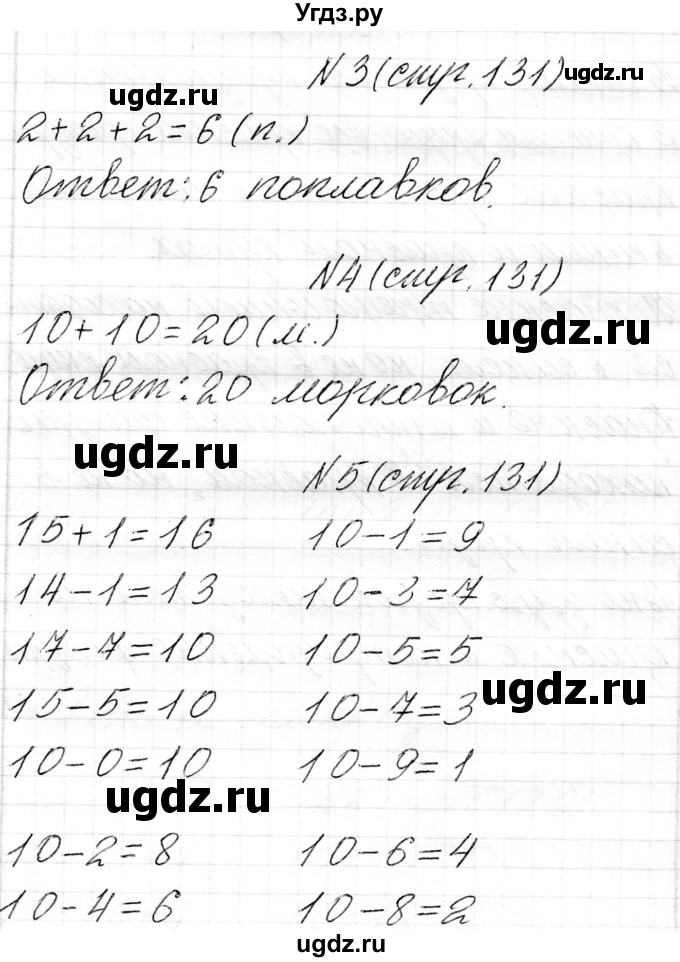 Угдз.ру
N 3 (стр. 131)
ugdz.ru
ugdz.ru
2+2+2=6 (п.)
Ответ: 6 поплавков.
N4 (стр. 131)
10+10=20 (м.)
ugdz.ru
Ответ: 20 морковок.
ugdz.ru
N5 (стр. 131)
15+1=16 10-1=9
14-1=13 10-3=7
17-7=10 10-5=5
15-5=10 10-7=3
ugdz.ru
10-0=10 10-9=1
ugdz.ru
10-2=8 10-6=4
10-4=6 10-8=2
ugdz.ru